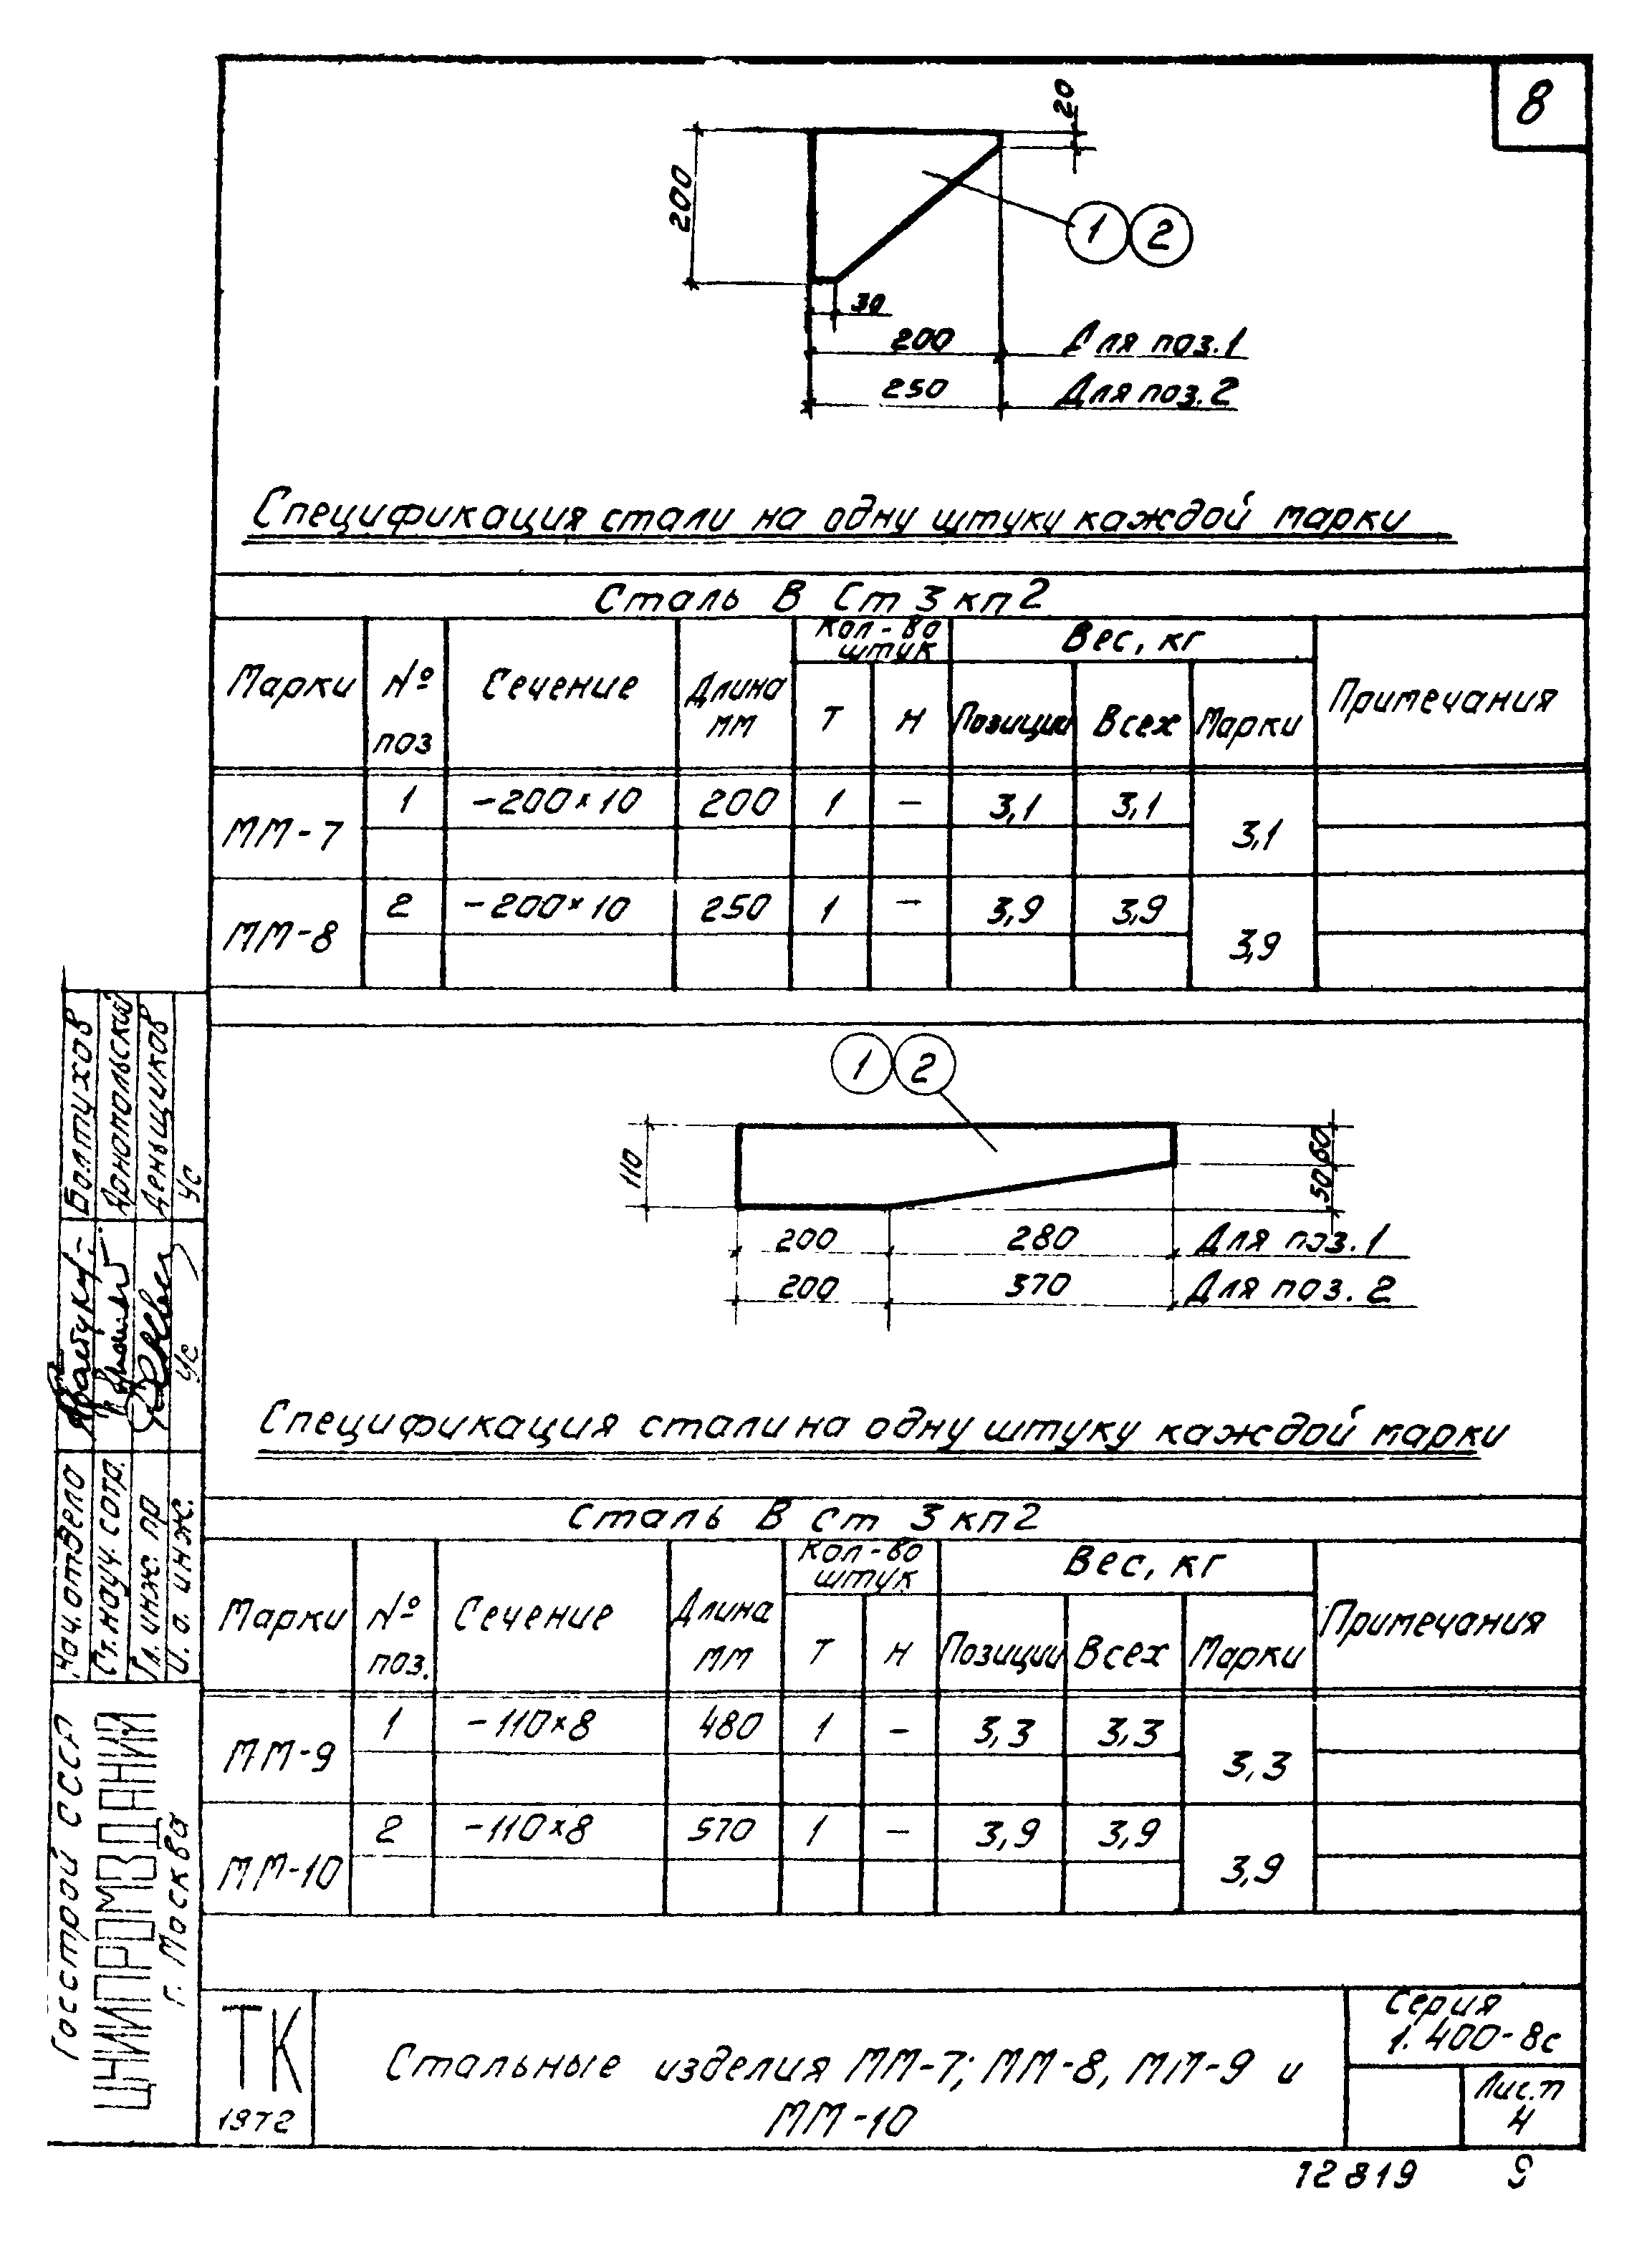 8
20
200
1 2
30
200 Для поз.1
250 Для поз.2
Спецификация стали на одну штуку каждой марки
Сталь В Ст 3 кп2
Марки № поз Сечение Длина мм Кол-во штук Т Н Вес, кг Позиции Всех Марки Примечания
ММ-7 1 -200×10 200 1 - 3,1 3,1 3,1
ММ-8 2 -200×10 250 1 - 3,9 3,9 3,9
1 2
110
60
50
200 280 Для поз.1
200 370 Для поз. 2
Спецификация стали на одну штуку каждой марки
Сталь В Ст 3 кп2
Марки № поз. Сечение Длина мм Кол-во штук Т Н Вес, кг Позиции Всех Марки Примечания
ММ-9 1 -110×8 480 1 - 3,3 3,3 3,3
ММ-10 2 -110×8 570 1 - 3,9 3,9 3,9
Нач. отдела Болтухов
Ст. науч. сотр.
Гл. инж. пр Деньщиков
И. о. инж. Ус Ус
Госстрой СССР
ЦНИИПРОМЗДАНИЙ
г. Москва
ТК
1972
Стальные изделия ММ-7; ММ-8, ММ-9 и
ММ-10
Серия
1.400-8с
Лист
4
12819 9